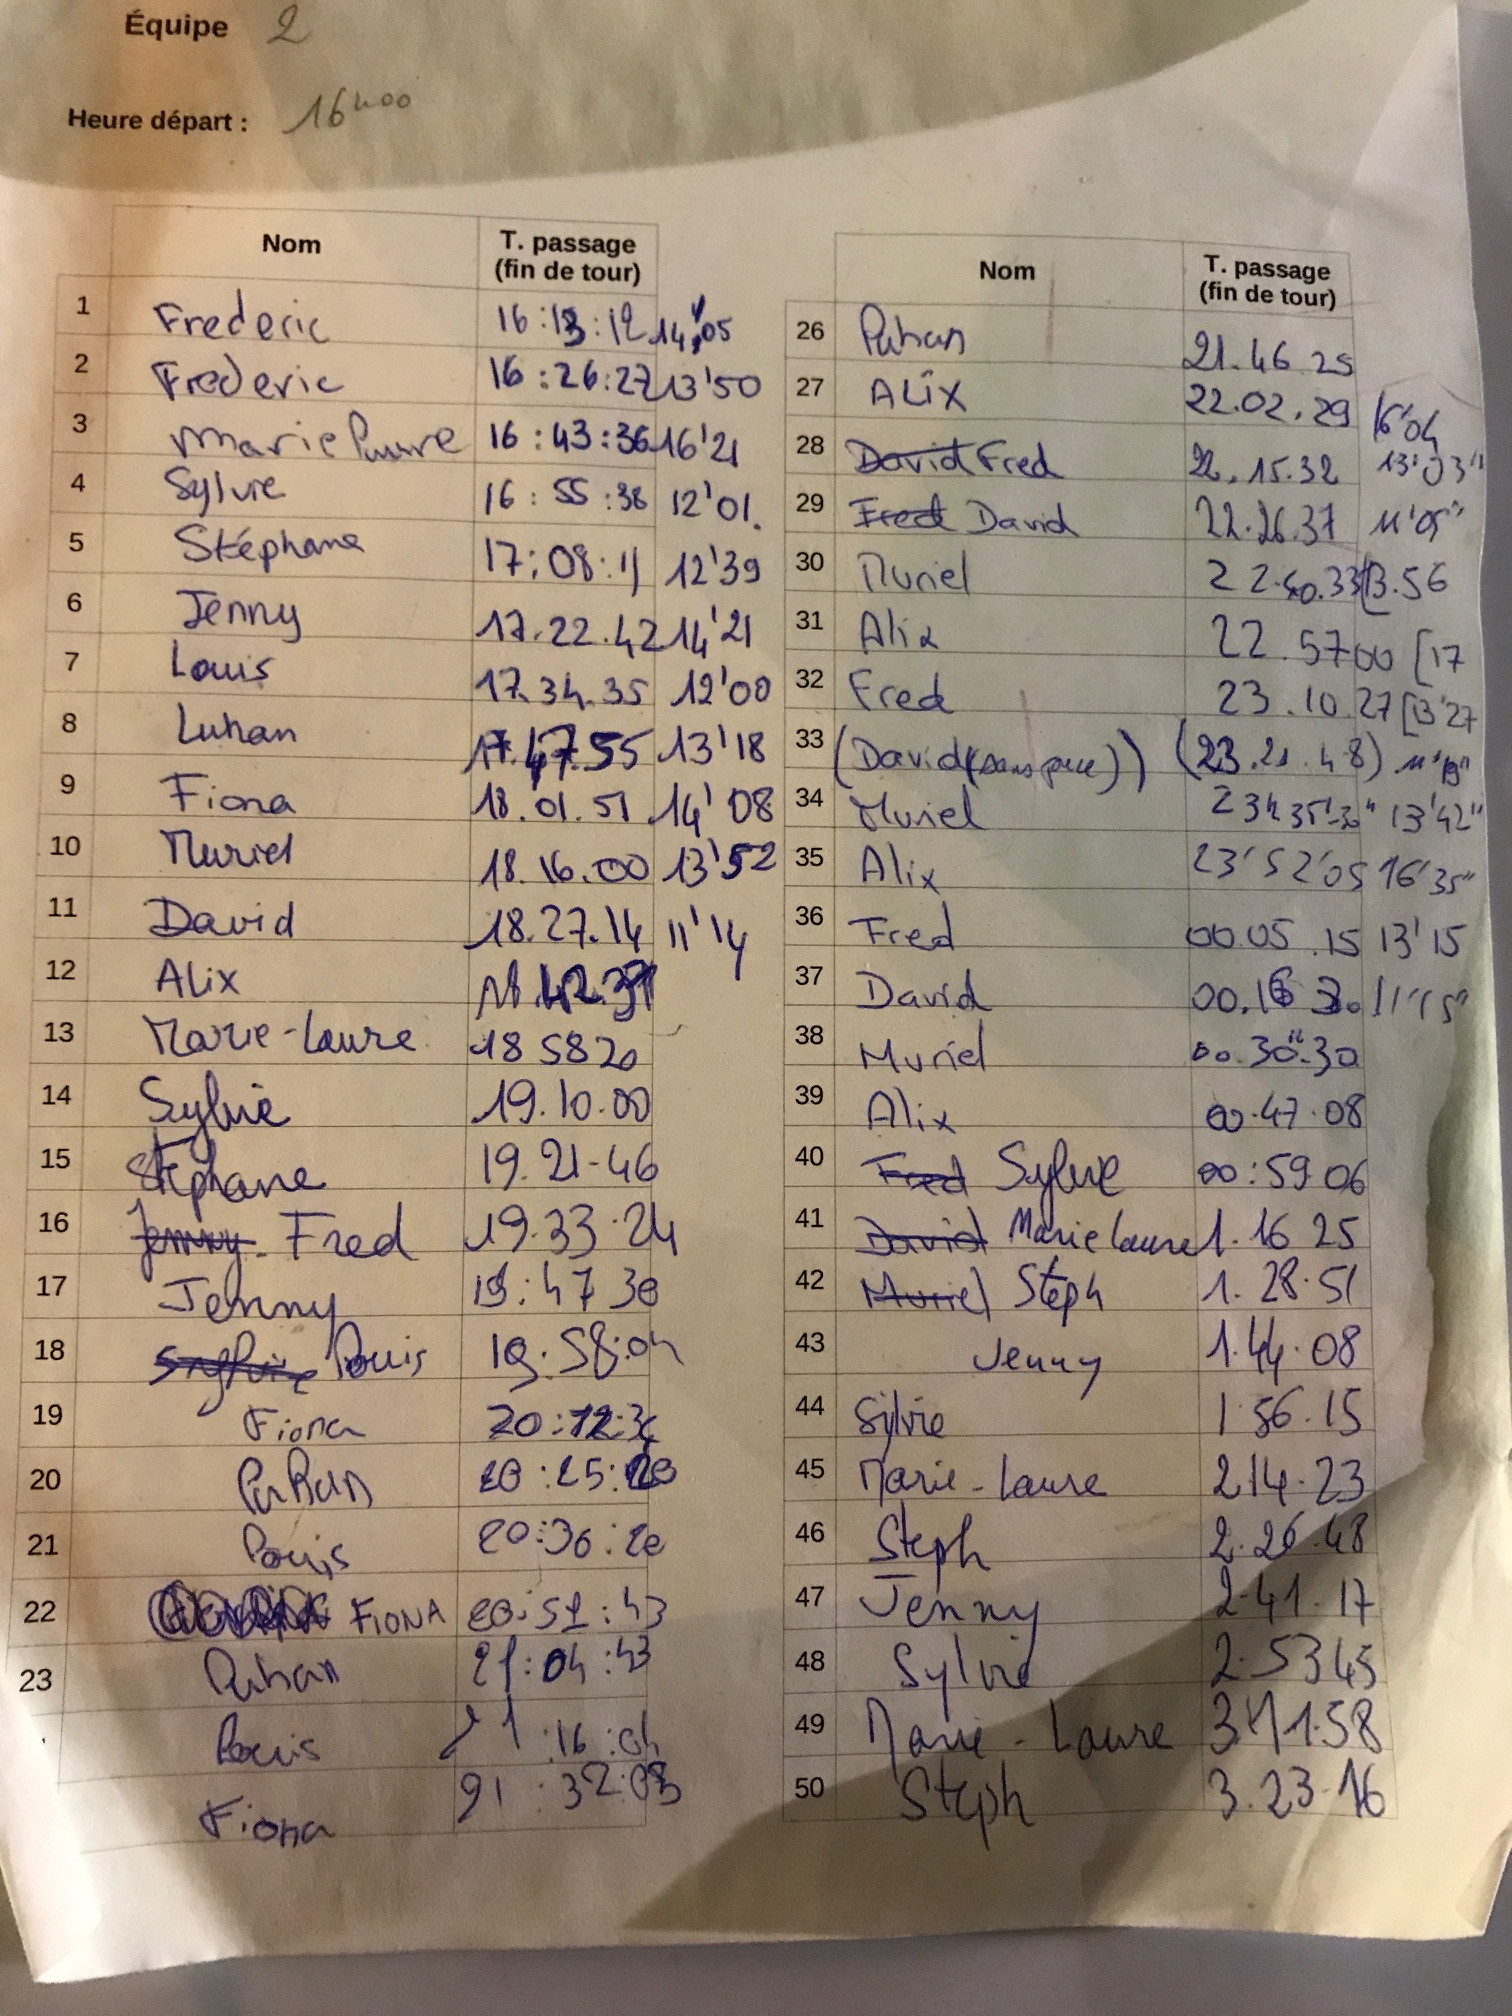 Équipe 2
Heure départ : 16h00
Nom T. passage (fin de tour)
1 Frederic 16:13:12 14'05
2 Frederic 16:26:27 13'50
3 Marie Laure 16:43:36 16'21
4 Sylvie 16:55:38 12'01.
5 Stéphane 17:08:11 12'39
6 Jenny 17.22.42 14'21
7 Louis 17.34.35 12'00
8 Luhan 17.47.55 13'18
9 Fiona 18.01.51 14'08
10 Muriel 18.16.00 13'52
11 David 18.27.14 11'14
12 Alix 18.42.37
13 Marie-Laure 18 58 20
14 Sylvie 19.10.00
15 Stéphane 19.21-46
16 Jenny - Fred 19.33.24
17 Jenny 19:47 30
18 Sylvie Louis 19.58:04
19 Fiona 20:12:
20 Luhan 20:25:20
21 Louis 20:36:20
22 FIONA 20:51:43
23 Luhan 21:04:43
Louis 21:16:04
Fiona 21:32:03
Nom T. passage (fin de tour)
26 Luhan 21.46 25
27 ALIX 22.02.29 16'04
28 David Fred 22.15.32 13'03"
29 Fred David 22.26.37 11'05"
30 Muriel 22.40.33 [13.56
31 Alix 22.57 00 [17
32 Fred 23.10.27 [13'27
33 (David (sans puce)) (23.21.48) 11'
34 Muriel 23h35'30" 13'42"
35 Alix 23'52'05 16'35"
36 Fred 00.05.15 13'15
37 David 00.16 30 11'15"
38 Muriel 00.30".30
39 Alix 00.47.08
40 Fred Sylvie 00:59.06
41 David Marie laure 1.16 25
42 Muriel Steph 1.28.51
43 Jenny 1.44.08
44 Sylvie 1 56.15
45 Marie-Laure 2.14.23
46 Steph 2.26.48
47 Jenny 2.41.17
48 Sylvie 2.53 45
49 Marie-Laure 3.11.58
50 Steph 3.23.16